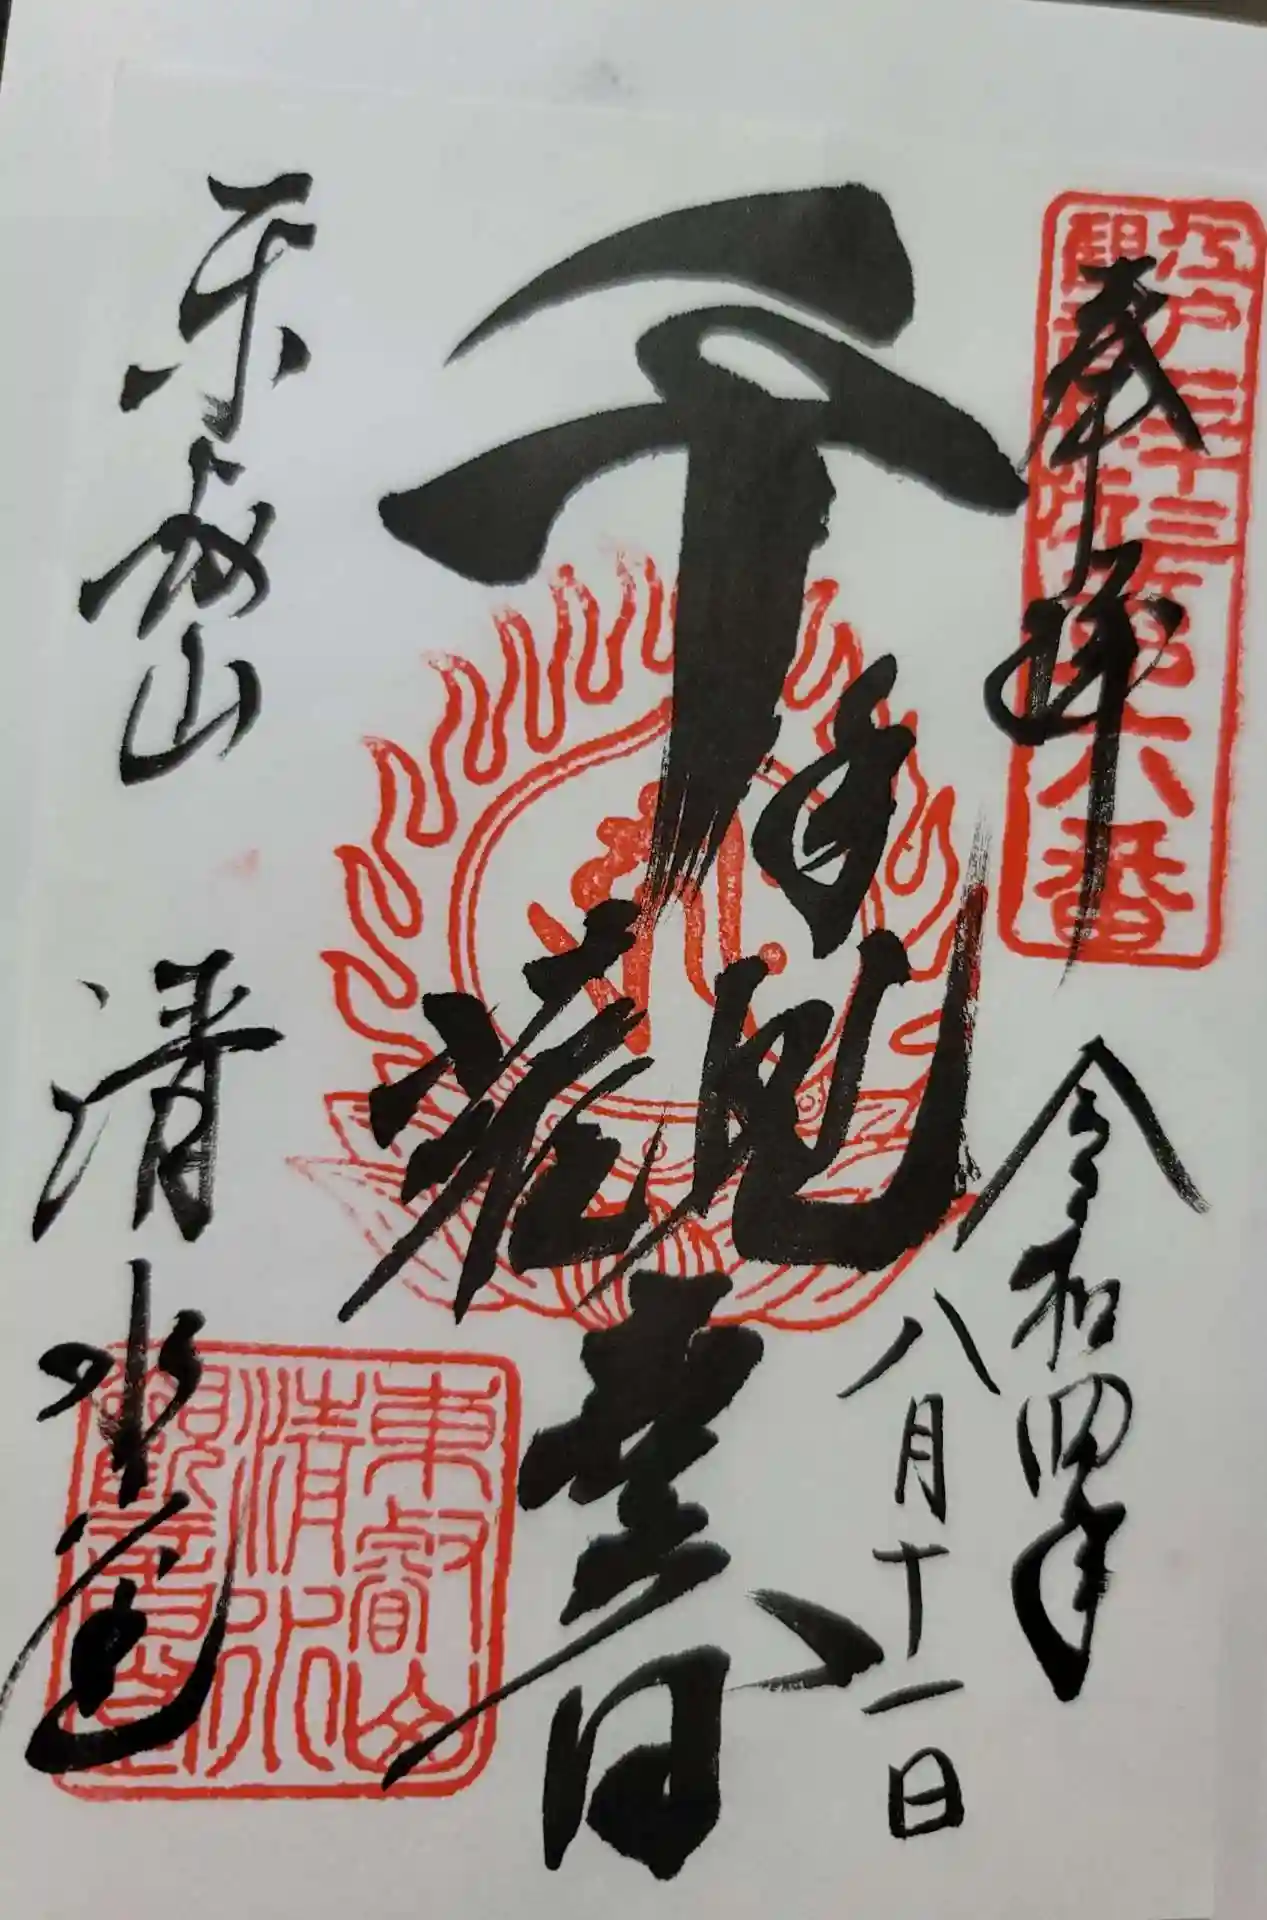 江戸三十三
観音札所
第六番
奉拝
令和四年
八月十一日
千手観世音
東叡山
清水堂
東叡山
清水
観音堂